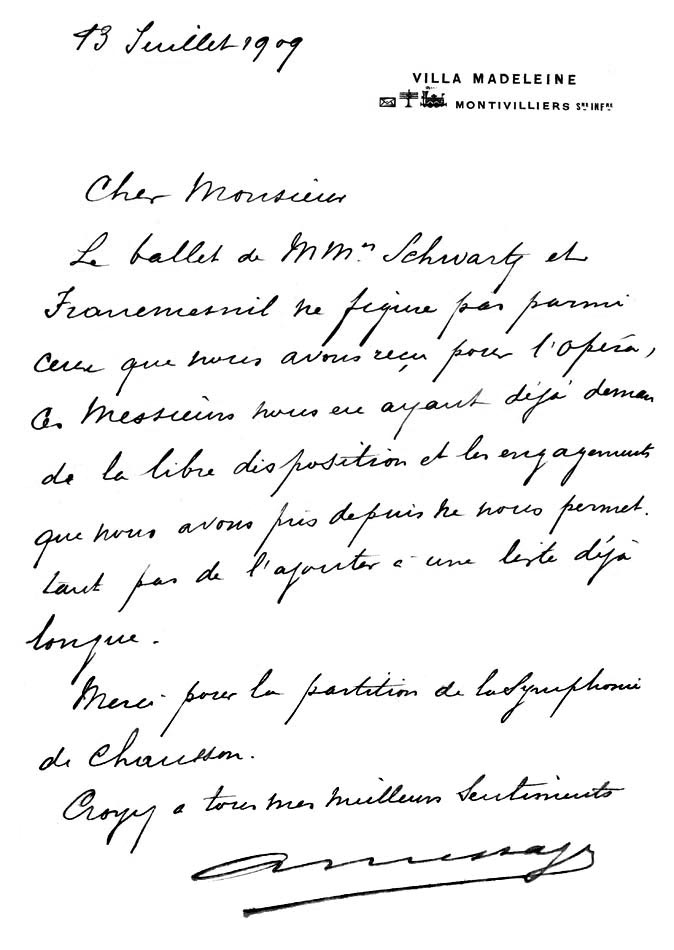 13 Juillet 1909
VILLA MADELEINE
MONTIVILLIERS Sne INFre
Cher Monsieur
Le ballet de MM.rs Schwartz et
Francmesnil ne figure pas parmi
ceux que nous avons reçu pour l'opéra,
ces Messieurs nous en ayant déjà deman
de la libre disposition et les engagements
que nous avons pris depuis ne nous permet.
tant pas de l'ajouter à une liste déjà
longue.
Merci pour la partition de la Symphonie
de Chausson.
Croyez a tous mes meilleurs Sentiments
A Messager